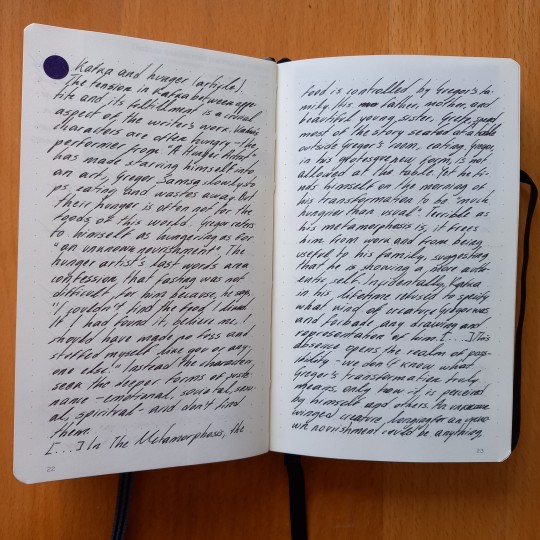 Kafka and hunger (article).
The tension in Kafka between appe-
tite and its fulfillment is a crucial
aspect of the writer's work. Kafka's
characters are often hungry – the
performer from "A Hunger Artist"
has made starving himself into
an art, Gregor Samsa slowly sto-
ps eating and wastes away. But
their hunger is often not for the
foods of this world. Gregor refers
to himself as hungering as for
"an unknown nourishment". The
hunger artist's last words are a
confession that fasting was not
difficult for him because, he says,
"I couldn't find the food I liked.
If I had found it, believe me, I
should have made no fuss and
stuffed myself like you or any-
one else." Instead the characters
seek the deeper forms of suste-
nance – emotional, societal, sexu-
al, spiritual – and don't find
them.
[...] In The Metamorphosis, the
22
food is controlled by Gregor's fa-
mily. His father, mother, and
beautiful young sister, Grete, spend
most of the story seated at a table
outside Gregor's room, eating. Gregor,
in his grotesque new form, is not
allowed at the table. Yet he fi-
nds himself on the morning of
his transformation to be "much
hungrier than usual". Terrible as
his metamorphosis is, it frees
him from work and from being
useful to his family, suggesting
that he is showing a more auth-
entic self. Incidentally, Kafka
in his lifetime refused to specify
what kind of creature Gregor was
and forbade any drawing and
representation of him. [...] This
absence opens the realm of poss-
ibility – we don't know what
Gregor's transformation truly
means, only how it is perceived
by himself and others. An
winged creature, longing for an unkno-
wn nourishment could be anything.
23